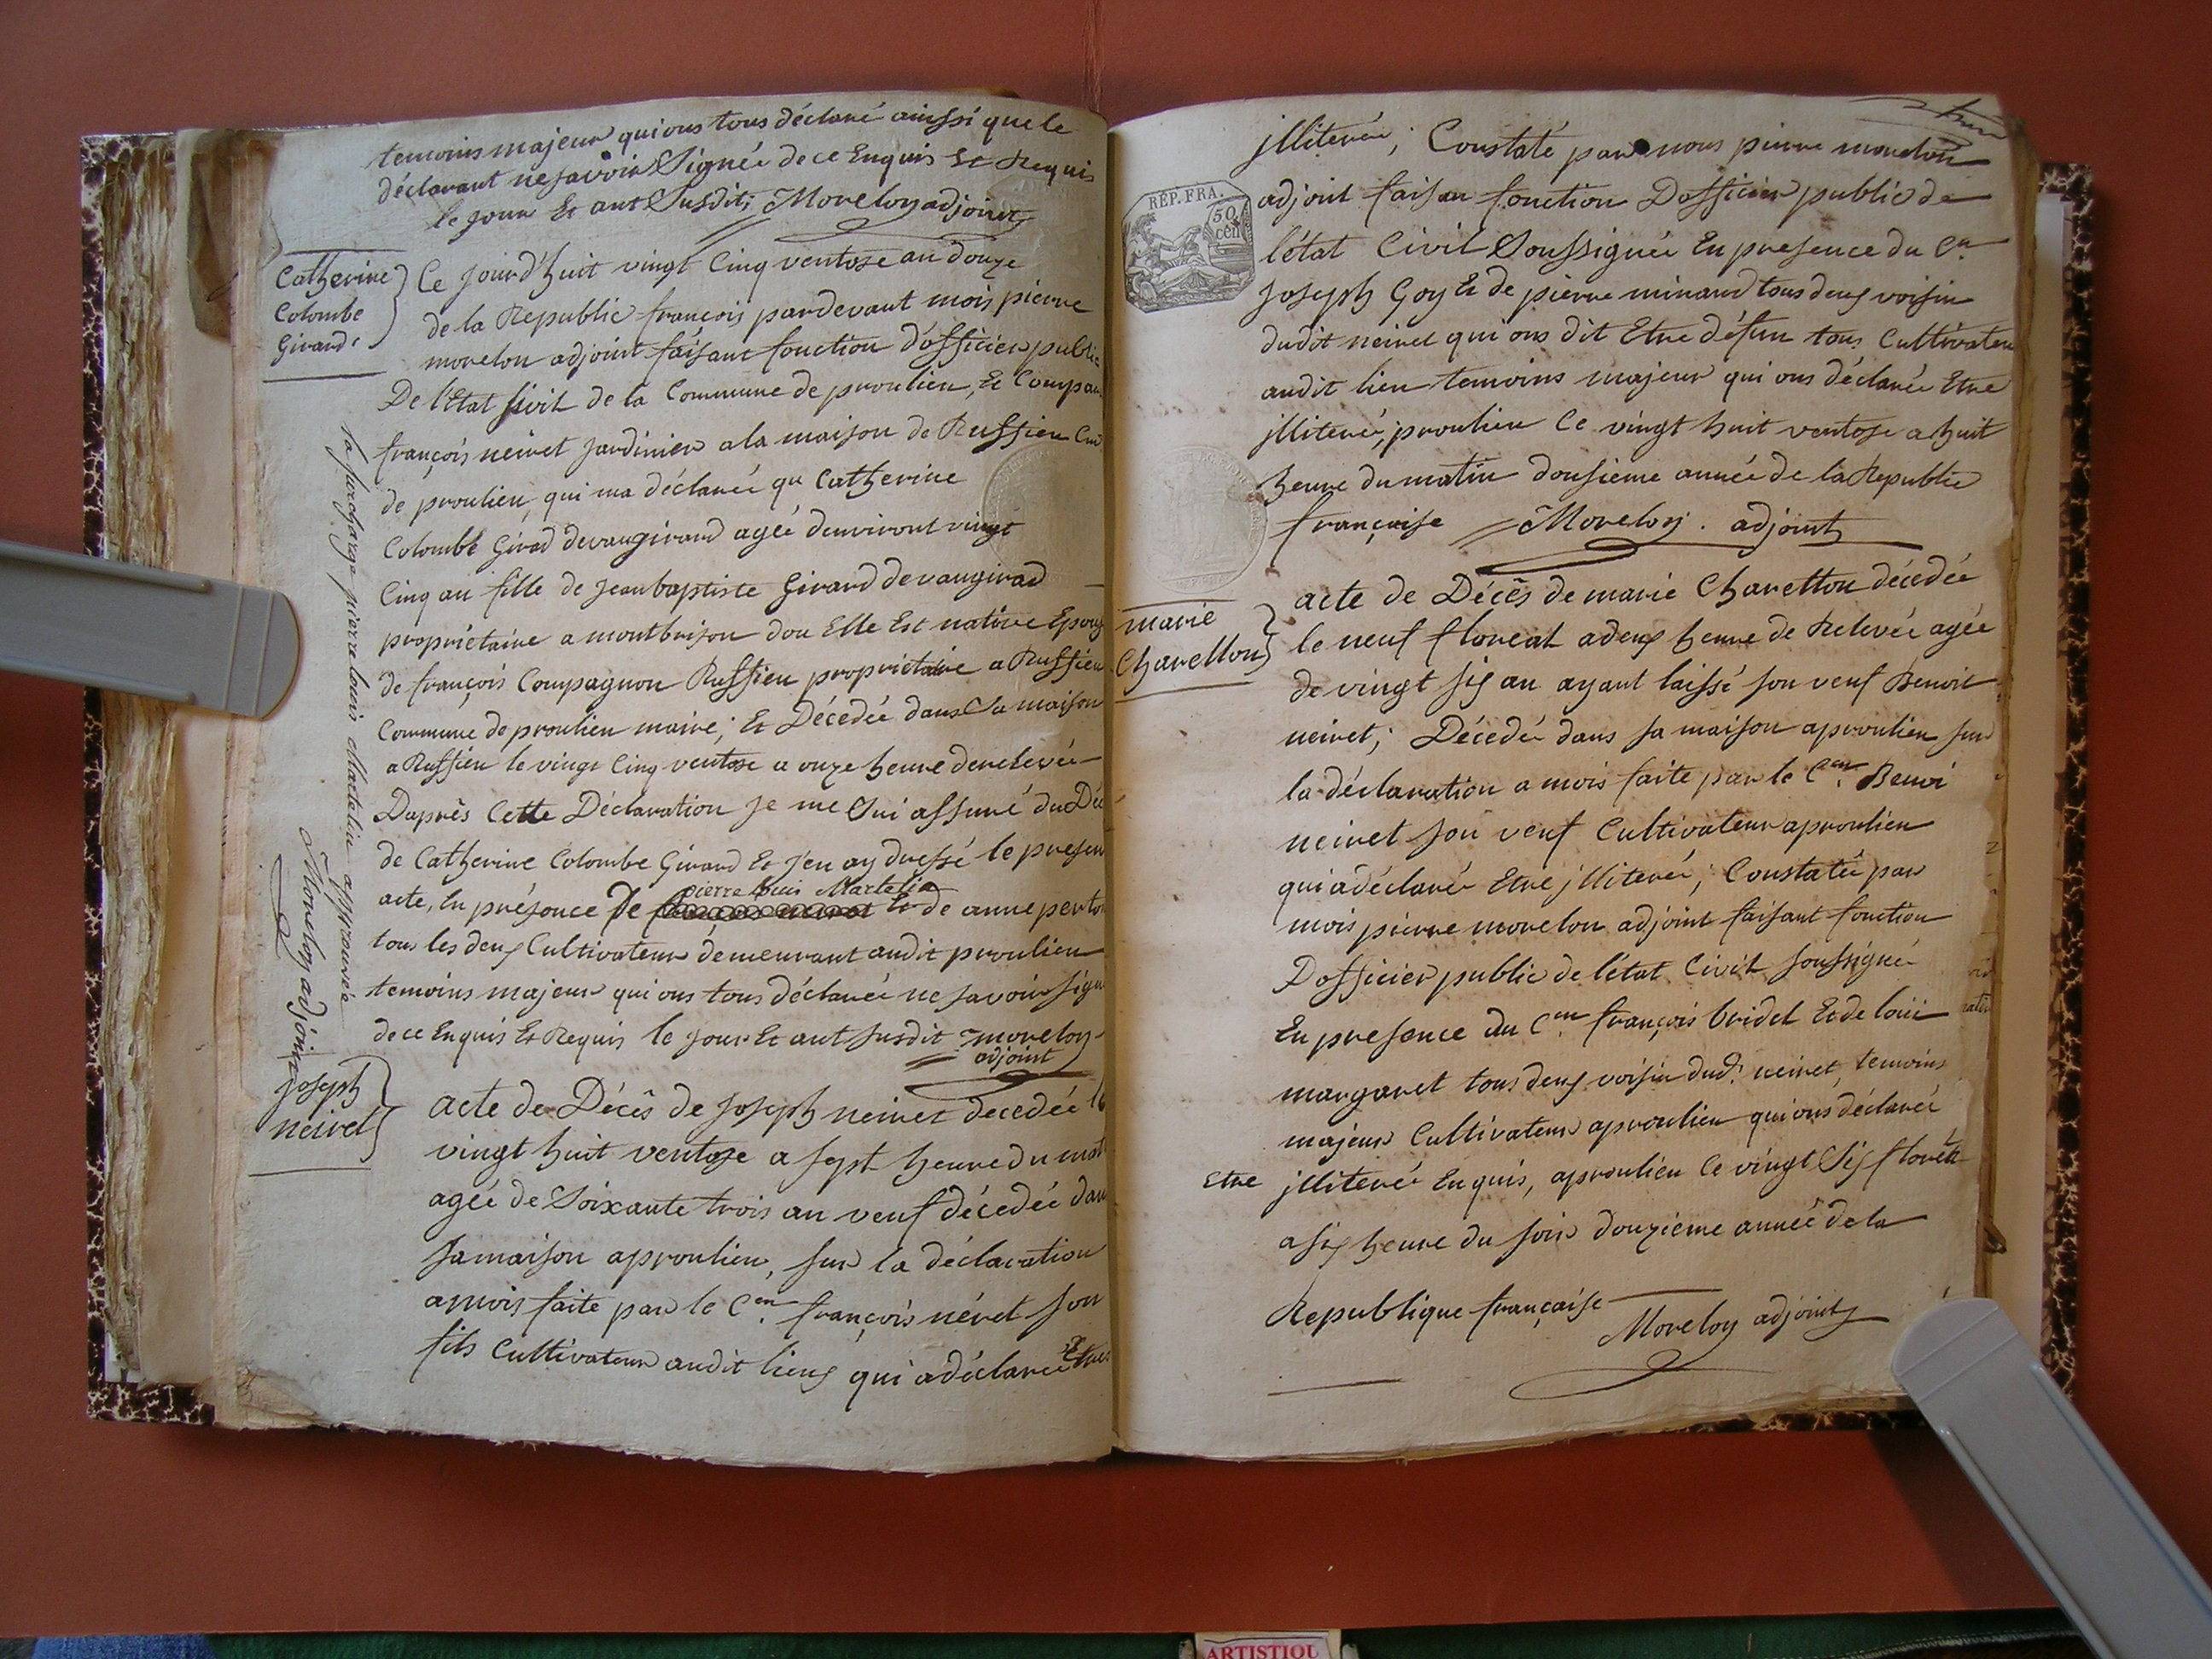 temoins majeur qui ons tous déclaré ainssi que le
déclarant ne savoir Signée de ce Enquis Et Requis
le jour Et ant Susdit; Morelon adjoint
Catherine
Colombe
Girard
Ce jourd'huit vingt Cinq ventose an douze
de la Republic françois pardevant mois pierre
morelon adjoint faisant fonction d'officier public
De l'Etat sivil de la Commune de proulieu, Et Compar
françois neiret jardinier a la maison de Russieu
de proulieu, qui ma déclarée qu Catherine
Colombe Girad devaugirard agée denviront vingt
Cinq an fille de jean baptiste Girard devaugirad
propriétaire a montbrison dou Elle Est native Epouse
de françois Compagnon Russieu propriétaire a Russieu
Commune de proulieu maire; Et Décedée dans Sa maison
a Russieu le vingt Cinq ventose a onze heure de relevée
Daprès Cette Déclaration je me Sui assuré du Déc
de Catherine Colombe Girard Et j'en ay dressé le presen
pierre louis Martelin
acte, En présence De françois neiret Et de anne perto
tous les deux Cultivateur demeurant audit proulieu
temoins majeur qui ons tous déclarée ne savoir sign
de ce Enquis Et Requis le jour Et ant susdit morelon
adjoint
la surcharge pierre louis Martelin approuvée
Morelon adjoint
joseph
neiret
acte de Décês de joseph neiret decedée le
vingt huit ventose a sept heure du mat
agée de Soixante trois an veuf décedée dan
sa maison a proulieu, sur la déclaration
a mois faite par le Cen françois néret son
fils Cultivateur audit lieux qui a déclarée Etre
jlliterée; Constaté par nous pierre morelon
REP. FRA.
50
cen
adjoint faisan fonction Dofficier public de
létat Civil Soussignée En presence du Cn
joseph Goy Et de pierre minard tous deux voisin
dudit neiret qui ons dit Etre défun tous Cultivateu
audit lieu temoins majeur qui ons déclarée Etre
jlliteré; proulieu Ce vingt huit ventose a huit
heure du matin dousieme année de la Republic
française Morelon. adjoint
marie
Charetton
acte de Décês de marie Charetton décedée
le neuf floreal a deux heure de Relevée agée
de vingt six an ayant laissé son veuf Benoit
neiret; Décedée dans sa maison a proulieu sur
la déclaration a mois faite par le Cen Benoi
neiret son veuf Cultivateur a proulieu
qui a déclarée Etre jlliterée; Constatée par
mois pierre morelon adjoint faisant fonction
Dofficier public de létat Civil soussigné
En presence du Cen françois bridet Et de loui
margaret tous deux voisin dud. neiret, temoins
majeur Cultivateur a proulieu qui ons déclarée
Etre jlliterée Enquis, a proulieu Ce vingt Six
a six heure du soir douzieme année de la
Republique française
Morelon adjoint
ARTISTIQU